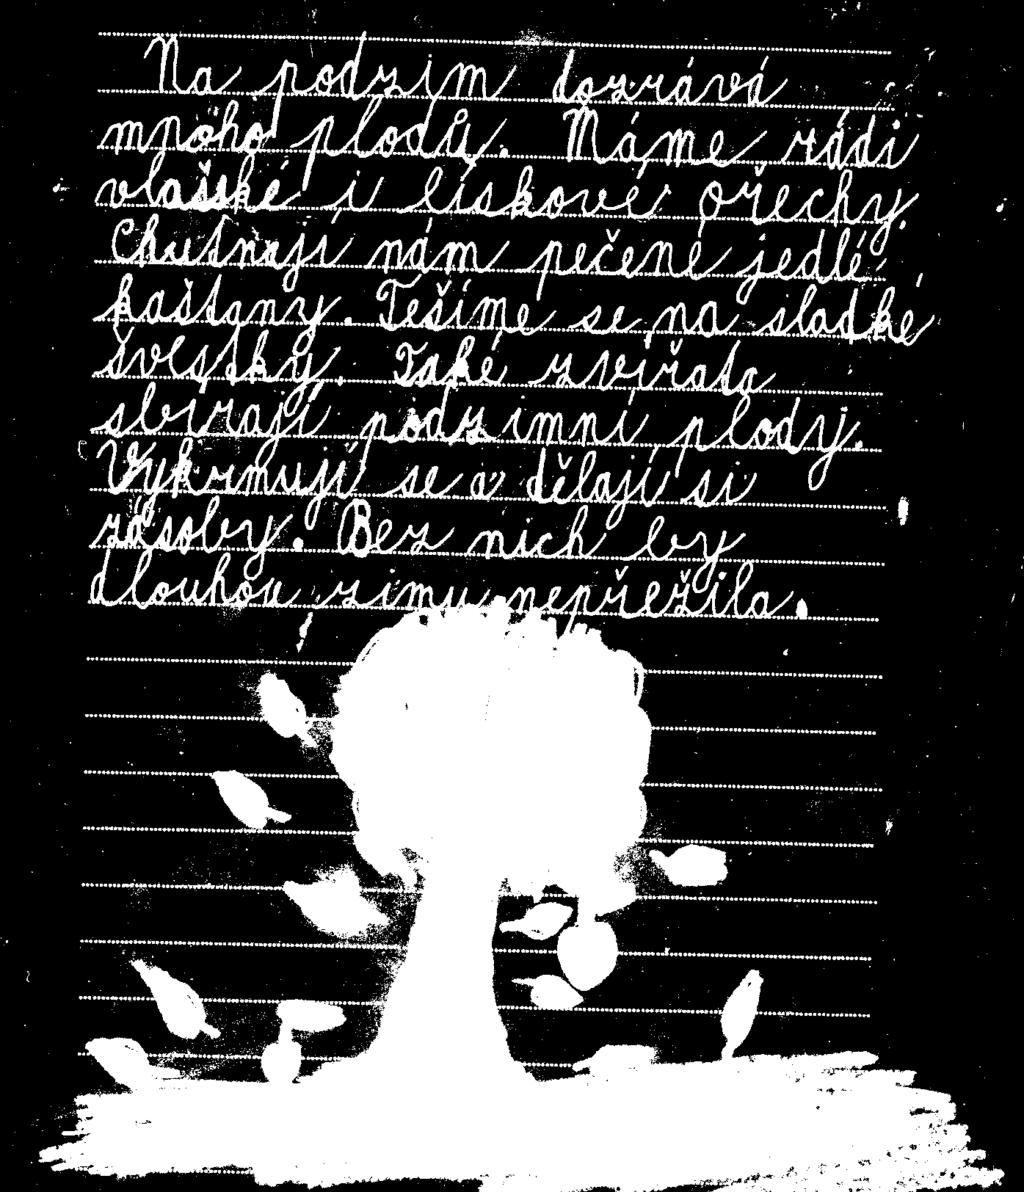 Na podzim dozrává
mnoho plodů. Máme rádi
vlašské i lískové ořechy.
Chutnají nám pečené jedlé
kaštany. Těšíme se na sladké
švestky. Také zvířata
sbírají podzimní plody.
Vykrmují se a dělají si
zásoby. Bez nich by
dlouhou zimu nepřežila.